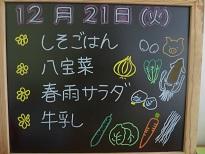 12月21日(火)
しそごはん
八宝菜
春雨サラダ
牛乳